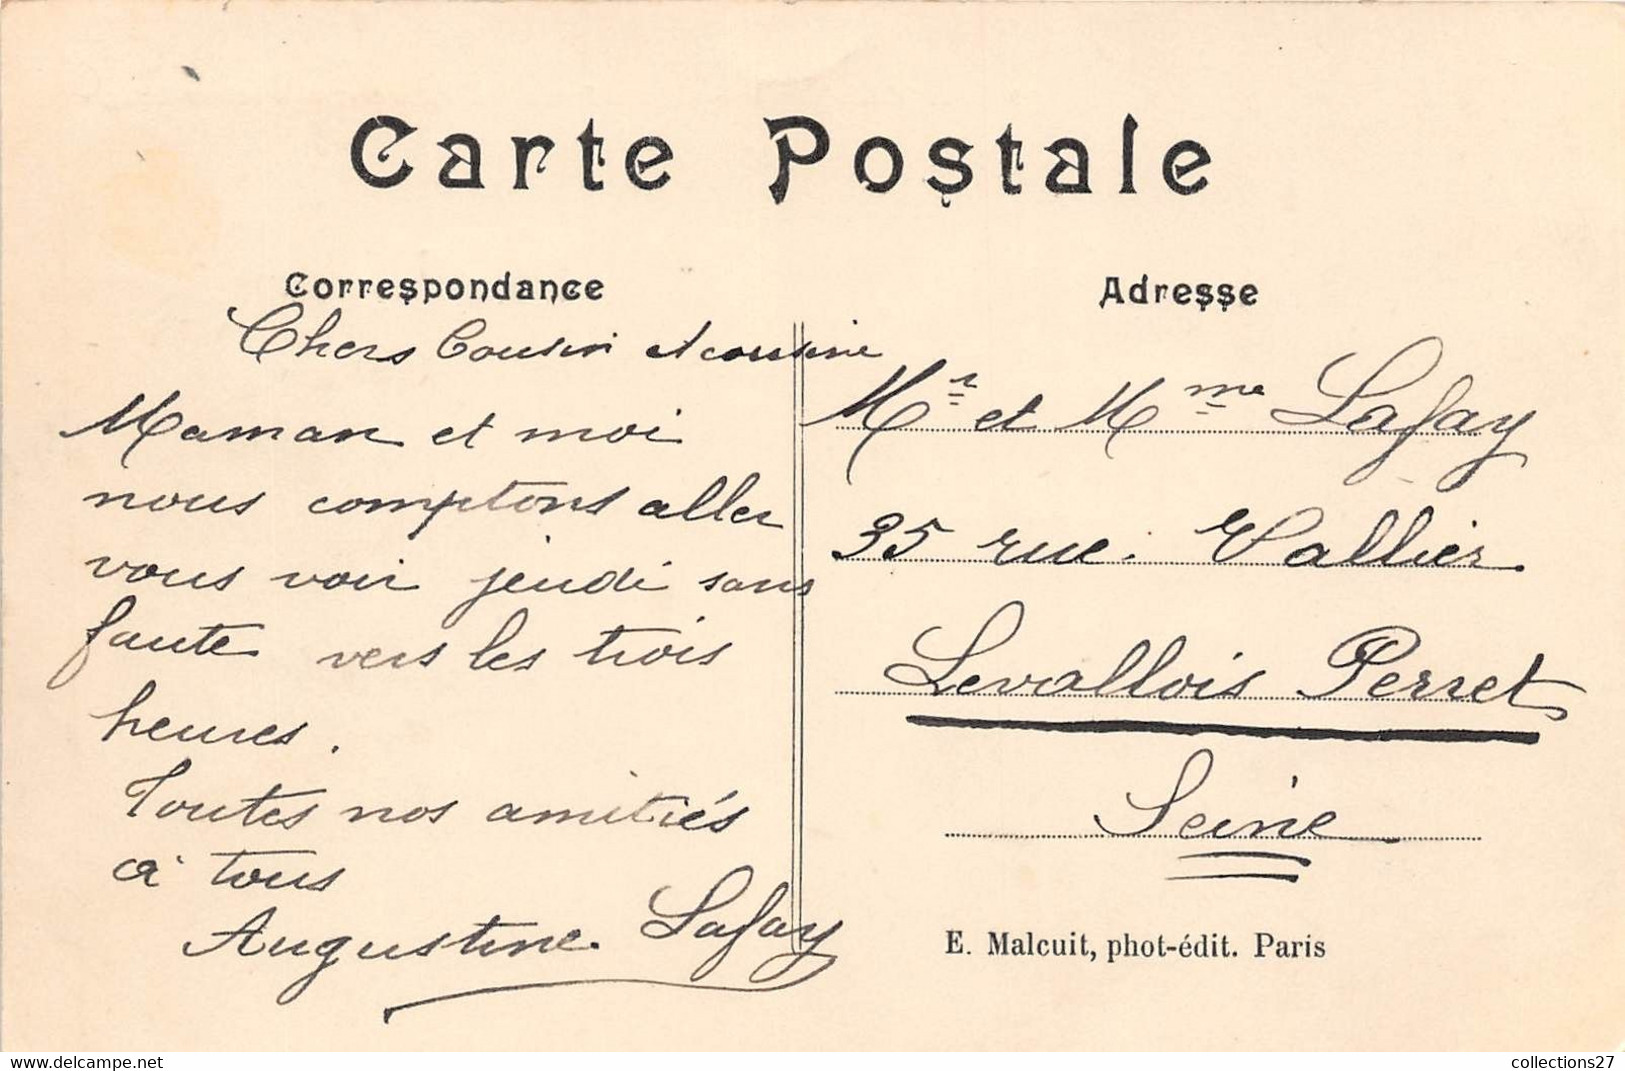 Carte Postale
Correspondance
Chers Cousin et cousine
Maman et moi
nous comptons aller
vous voir jeudi sans
faute vers les trois
heures.
Toutes nos amitiés
à tous
Augustine Lafay
Adresse
Mr et Mme Lafay
35 rue Vallier
Levallois Perret
Seine
E. Malcuit, phot-édit. Paris
www.delcampe.net
collections27